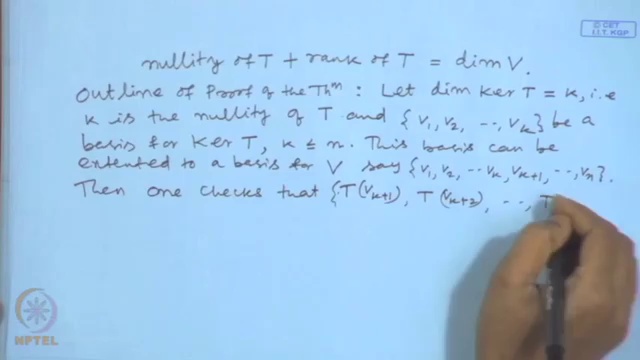 © CET
I.I.T. KGP
nullity of T + rank of T = dim V.
Outline of Proof of the Thm : Let dim Ker T = k, i.e
k is the nullity of T and {v1, v2, ..., vk} be a
basis for Ker T, k ≤ n. This basis can be
extented to a basis for V say {v1, v2, ... vk, vk+1, ..., vn}.
Then one checks that {T(vk+1), T(vk+2), ..., T
NPTEL